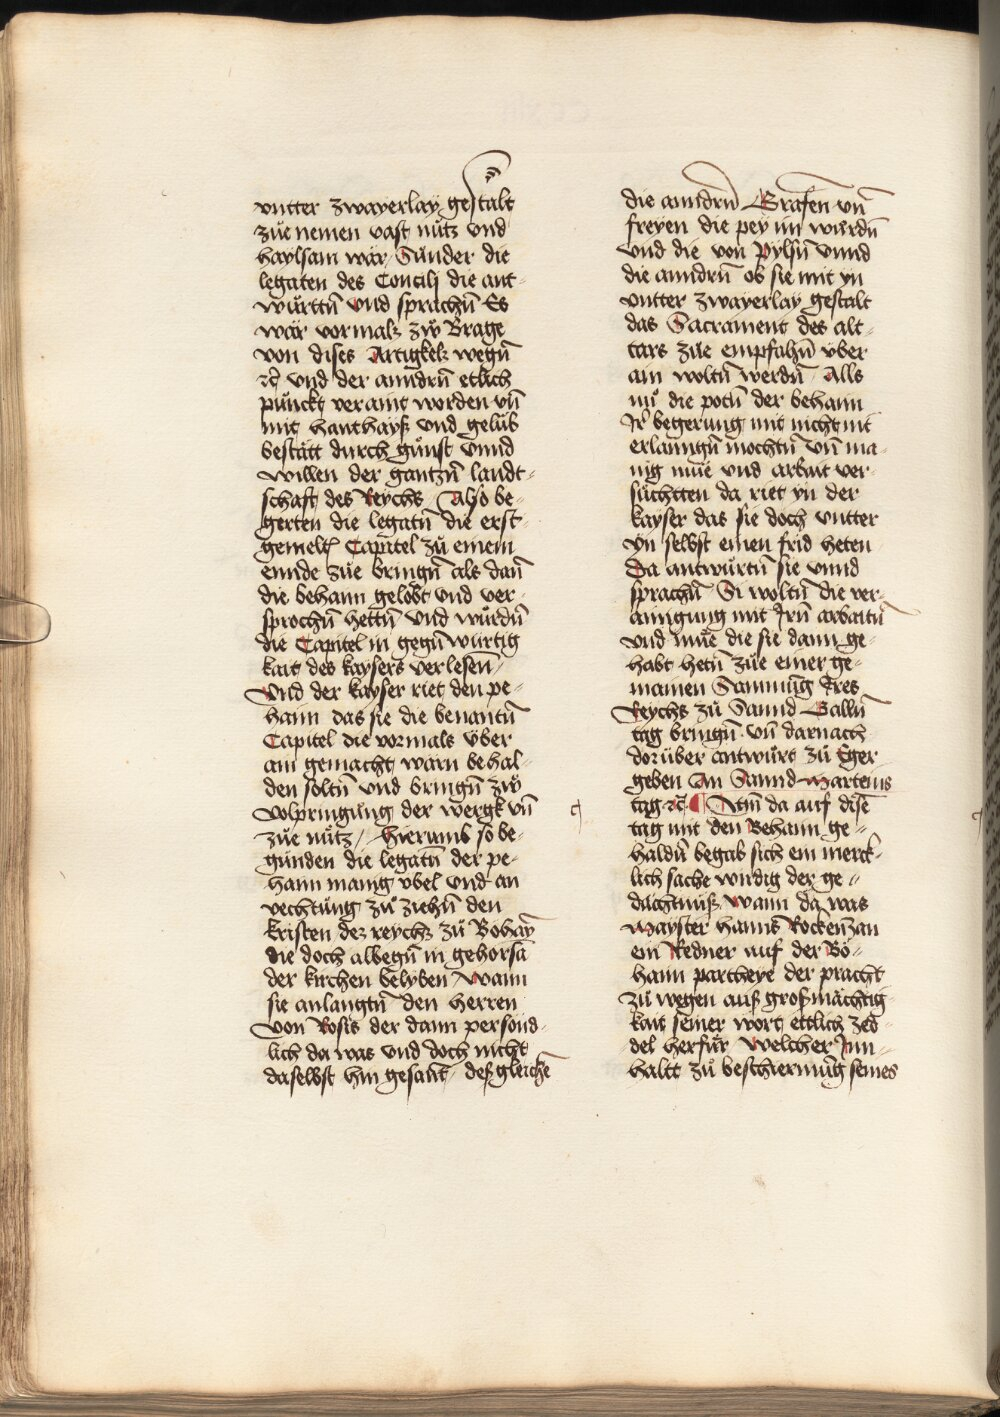 vntter zwayerlay gestalt
zuͤe nemen vast nuͤtz vnd
haylsam waͤr Suͤnder die
legaten des Concilj die ant-
wuͤrttn̄ vnd sprachn̄ Es
waͤr vormalꝫ zw̋ Brage
von dises Artigkelꝫ wegn̄
ꝛc̄ vnd der anndrn̄ etlich
puͤnckt veraint worden vn̄
mit hanthayß vnd geluͤb
bestaͤtt durch guͤnst vnnd
willen der gantzn̄ landt-
schafft des Reychs Also be-
gerten die legatn̄ die erst-
gemelt Capitel zuͤ einem
ennde zuͤe bringn̄ als dan̄
die behann gelobt vnd ver-
sprochn̄ hettn̄ vnd wuͤrdn̄
die Capitel in gegn̄wuͤrtig
kait des kaysers verlesen̄
Vnd der kayser riet den pe-
hann das sie die benantn̄
Capitel die vormals vͤber
ain gemacht warn behal-
den soltn̄ vnd bringn̄ zw̋
volpringuͤng der wergk vn̄
zuͤe nuͤtz / Hierumb so be-
guͤnden die legatn̄ der pe-
hann manig vbel vnd an
vechtuͤng zuͤ ziehn̄ den
kristen deꝫ reychꝫ zuͤ Boͤhaȳ
die doch albegn̄ in gehorsā
der kirchen belyben / wann
sie anlangtn̄ den herren
Von Rosis der dann persoͤnd-
lich da was vnd doch nicht
daselbst hin gesant / deßgleichē
die anndrn̄ Grafen vn̄
freyen die pey im wurdn̄
vnd die von Pylsn̄ vnnd
die anndrn̄ ob sie mit yn
vntter zwayerlay gestalt
das Sacrament des alt-
tars zuͤe empfahn̄ vͤber
ain woltn̄ werdn̄ / Alls
nuͤ die potn̄ der behann
Jr begerung mit nicht nit
erlanngn̄ mochtn̄ vn̄ ma-
nig muͤe vnd arbait ver-
suͤchtten da riet yn der
kayser das sie doch vntter
yn selbst einen frid heten
Da antwuͤrtn̄ sie vnnd
sprachn̄ Si woltn̄ die ver-
ainigung mit Jrn̄ arbaitn̄
vnd muͤe die sie dann ge-
habt hetn̄ zuͤe einer ge-
mainen Samnuͤg Jres
Reychs zuͤ Sannd Galln̄
tag bringn̄ vn̄ darnach
doruͤber antwuͤrt zuͤ Eger
geben An Sannd Marteins
tag ꝛc̄ ¶ Itm̄ da auf disē
tag mit den Behann ge-
haldn̄ begab sich ein merck-
lich sache wirdig der ge-
daͤchtnuͤß wann da was
Mayster Hanns Rockenzan
ein Redner auf der Boͤ-
hann partheye der pracht
zuͤ wegen auß großmaͤchtig
kait seiner wort ettlich zed
del herfuͤr welcher Jnn-
haltt zuͤ beschiermuͤg seines